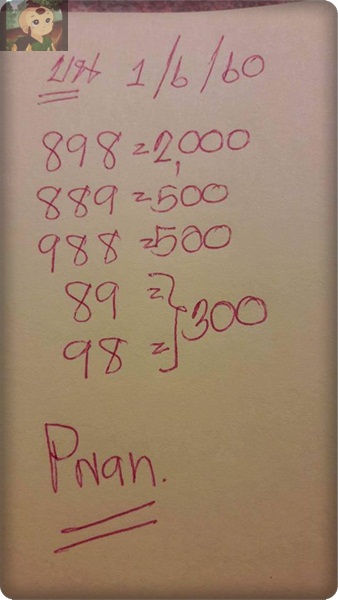 1/6/60
898 = 2,000
889 = 500
988 = 500
89 =
98 = } 300
Pnan.